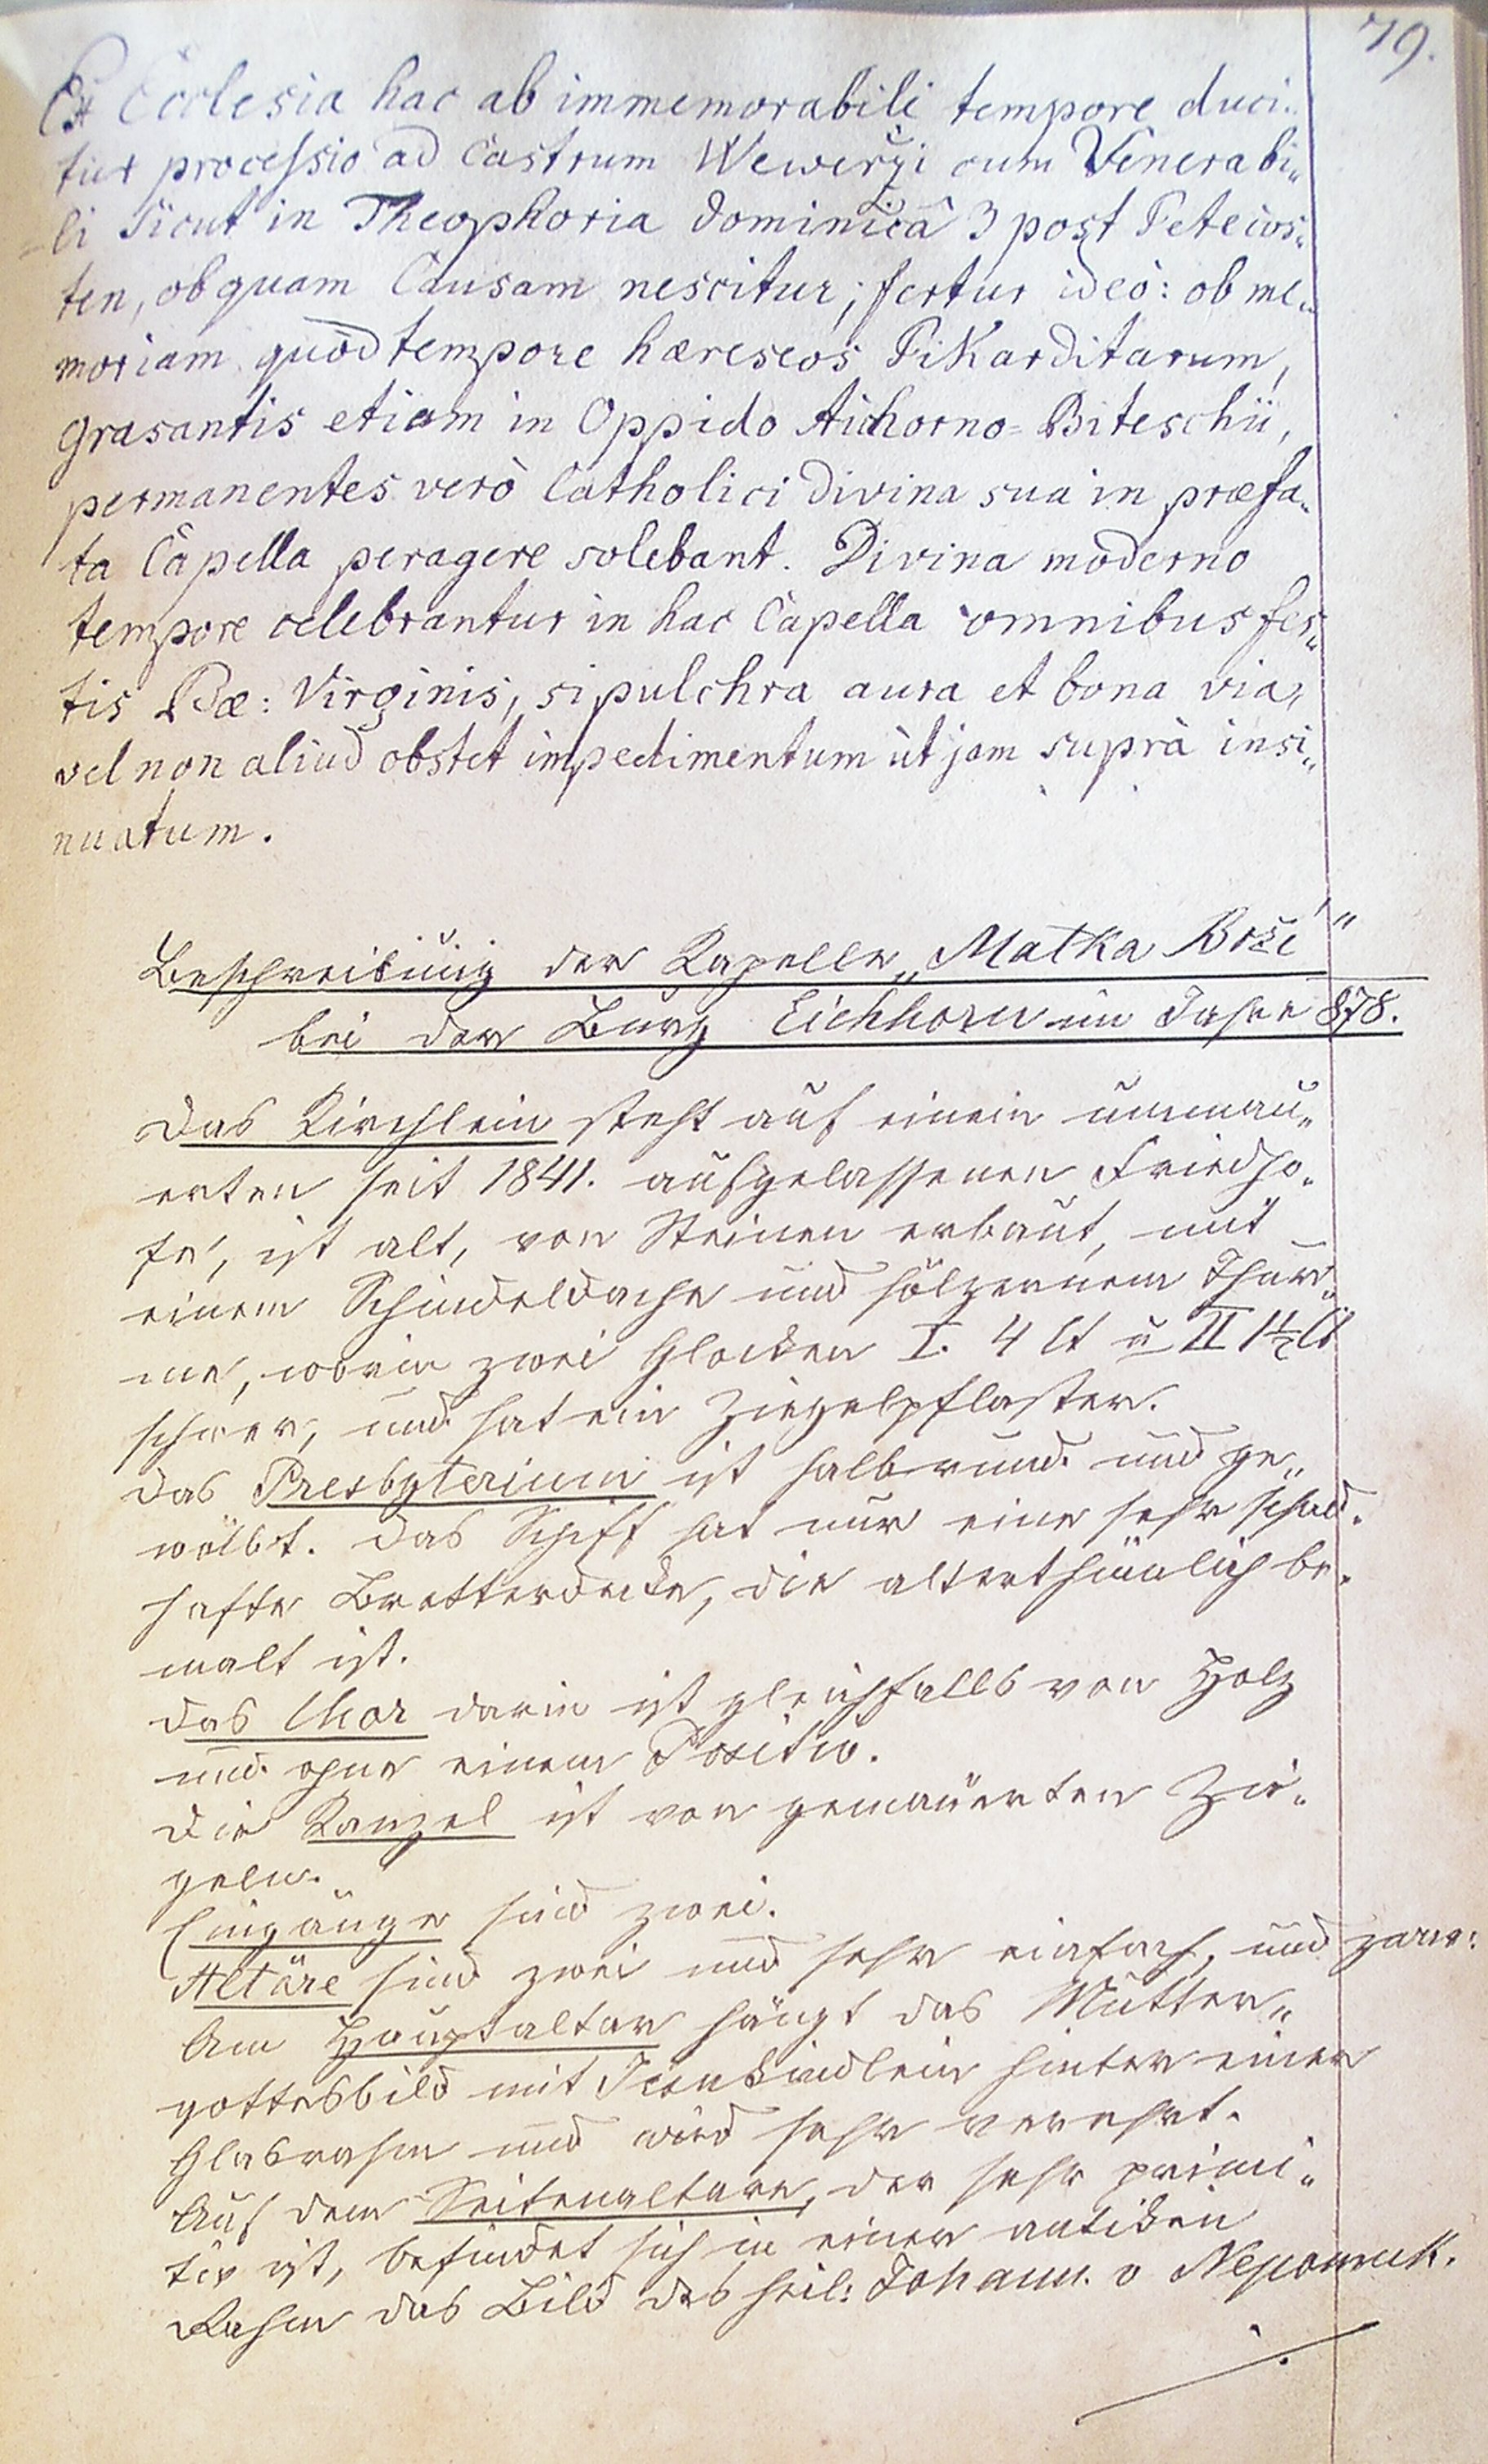 79.
Ex Ecclesia hac ab immemorabili tempore duci„
tur processio ad Castrum Wewerži cum Venerabi„
=li sicut in Theophoria Dominicâ 3 post Petecos„
ten, ob quam Causam nescitur; fertur ideò: ob me„
moriam quòd tempore hæreseos Pikarditarum,
grasantis etiam in Oppido Aichorno-Biteschii,
permanentes verò Catholici Divina sua in præfa„
ta Capella peragere solebant. Divina moderno
tempore celebrantur in hac Capella omnibus fes„
tis Bæ: Virginis, si pulchra aura et bona via,
vel non aliud obstet impedimentum ùt jam suprà insi„
nuatum.
Beschreibung der Kapelle „Matka Boží"
bei der Burg Eichhorn im Jahre 878.
Das Kirchlein steht auf einem ummau„
erten seit 1841. aufgelassenen Friedho„
fe, ist alt, von Steinen erbaut, mit
einem Schindeldache und hölzernem Thur„
me, worin zwei Glocken I. 4 Ct u II 1½ Ct
schwer, und hat ein Ziegelpflaster.
Das Presbyterium ist halbrund und ge„
wölbt. Das Schiff hat nur eine sehr schad„
hafte Bretterdecke, die alterthümlich be„
malt ist.
Das Chor darin ist gleichfalls von Holz
und ohne einem Positiv.
Die Kanzel ist von gemauerten Zie„
geln.
Eingänge sind zwei.
Altäre sind zwei und sehr einfach, und zwar:
Am Hauptaltar hängt das Mutter„
gottesbild mit Jesukindlein hinter einer
Glasrahm und wird sehr verehrt.
Auf dem Seitenaltare, der sehr primi„
tiv ist, befindet sich in einer antiken
Rahm das Bild des heil: Johann. v Nepomuk.
./.